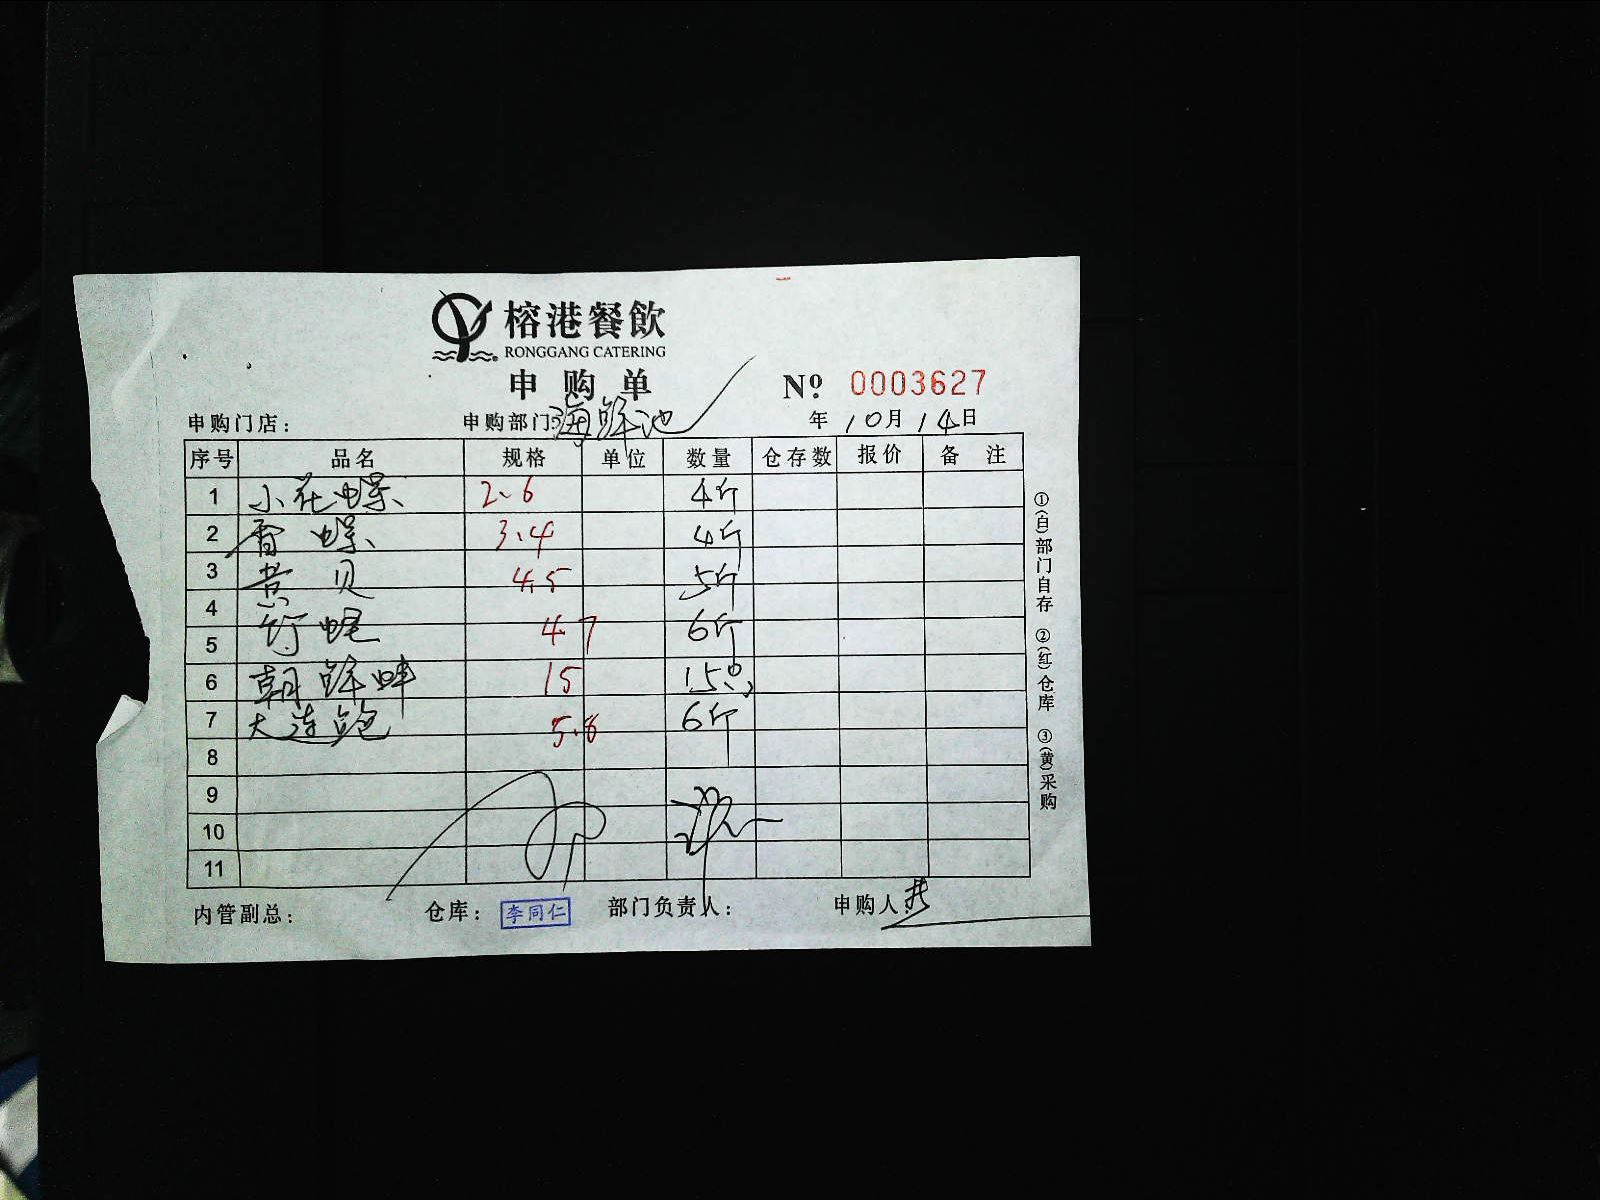 榕港餐飲
RONGGANG CATERING
申购单
Nº 0003627
申购门店： 申购部门：海鲜池 年 10月 14日
序号 品名 规格 单位 数量 仓存数 报价 备注
1 小花螺 2.6 4斤
2 香螺 3.4 4斤
3 黄贝 4.5 5斤
4
5 竹蛏 4.7 6斤
6 朝鲜蚌 15 15只
7 大连鲍 5.8 6斤
8
9
10
11
内管副总： 仓库：李同仁 部门负责人： 申购人：
①(白)部门自存 ②(红)仓库 ③(黄)采购